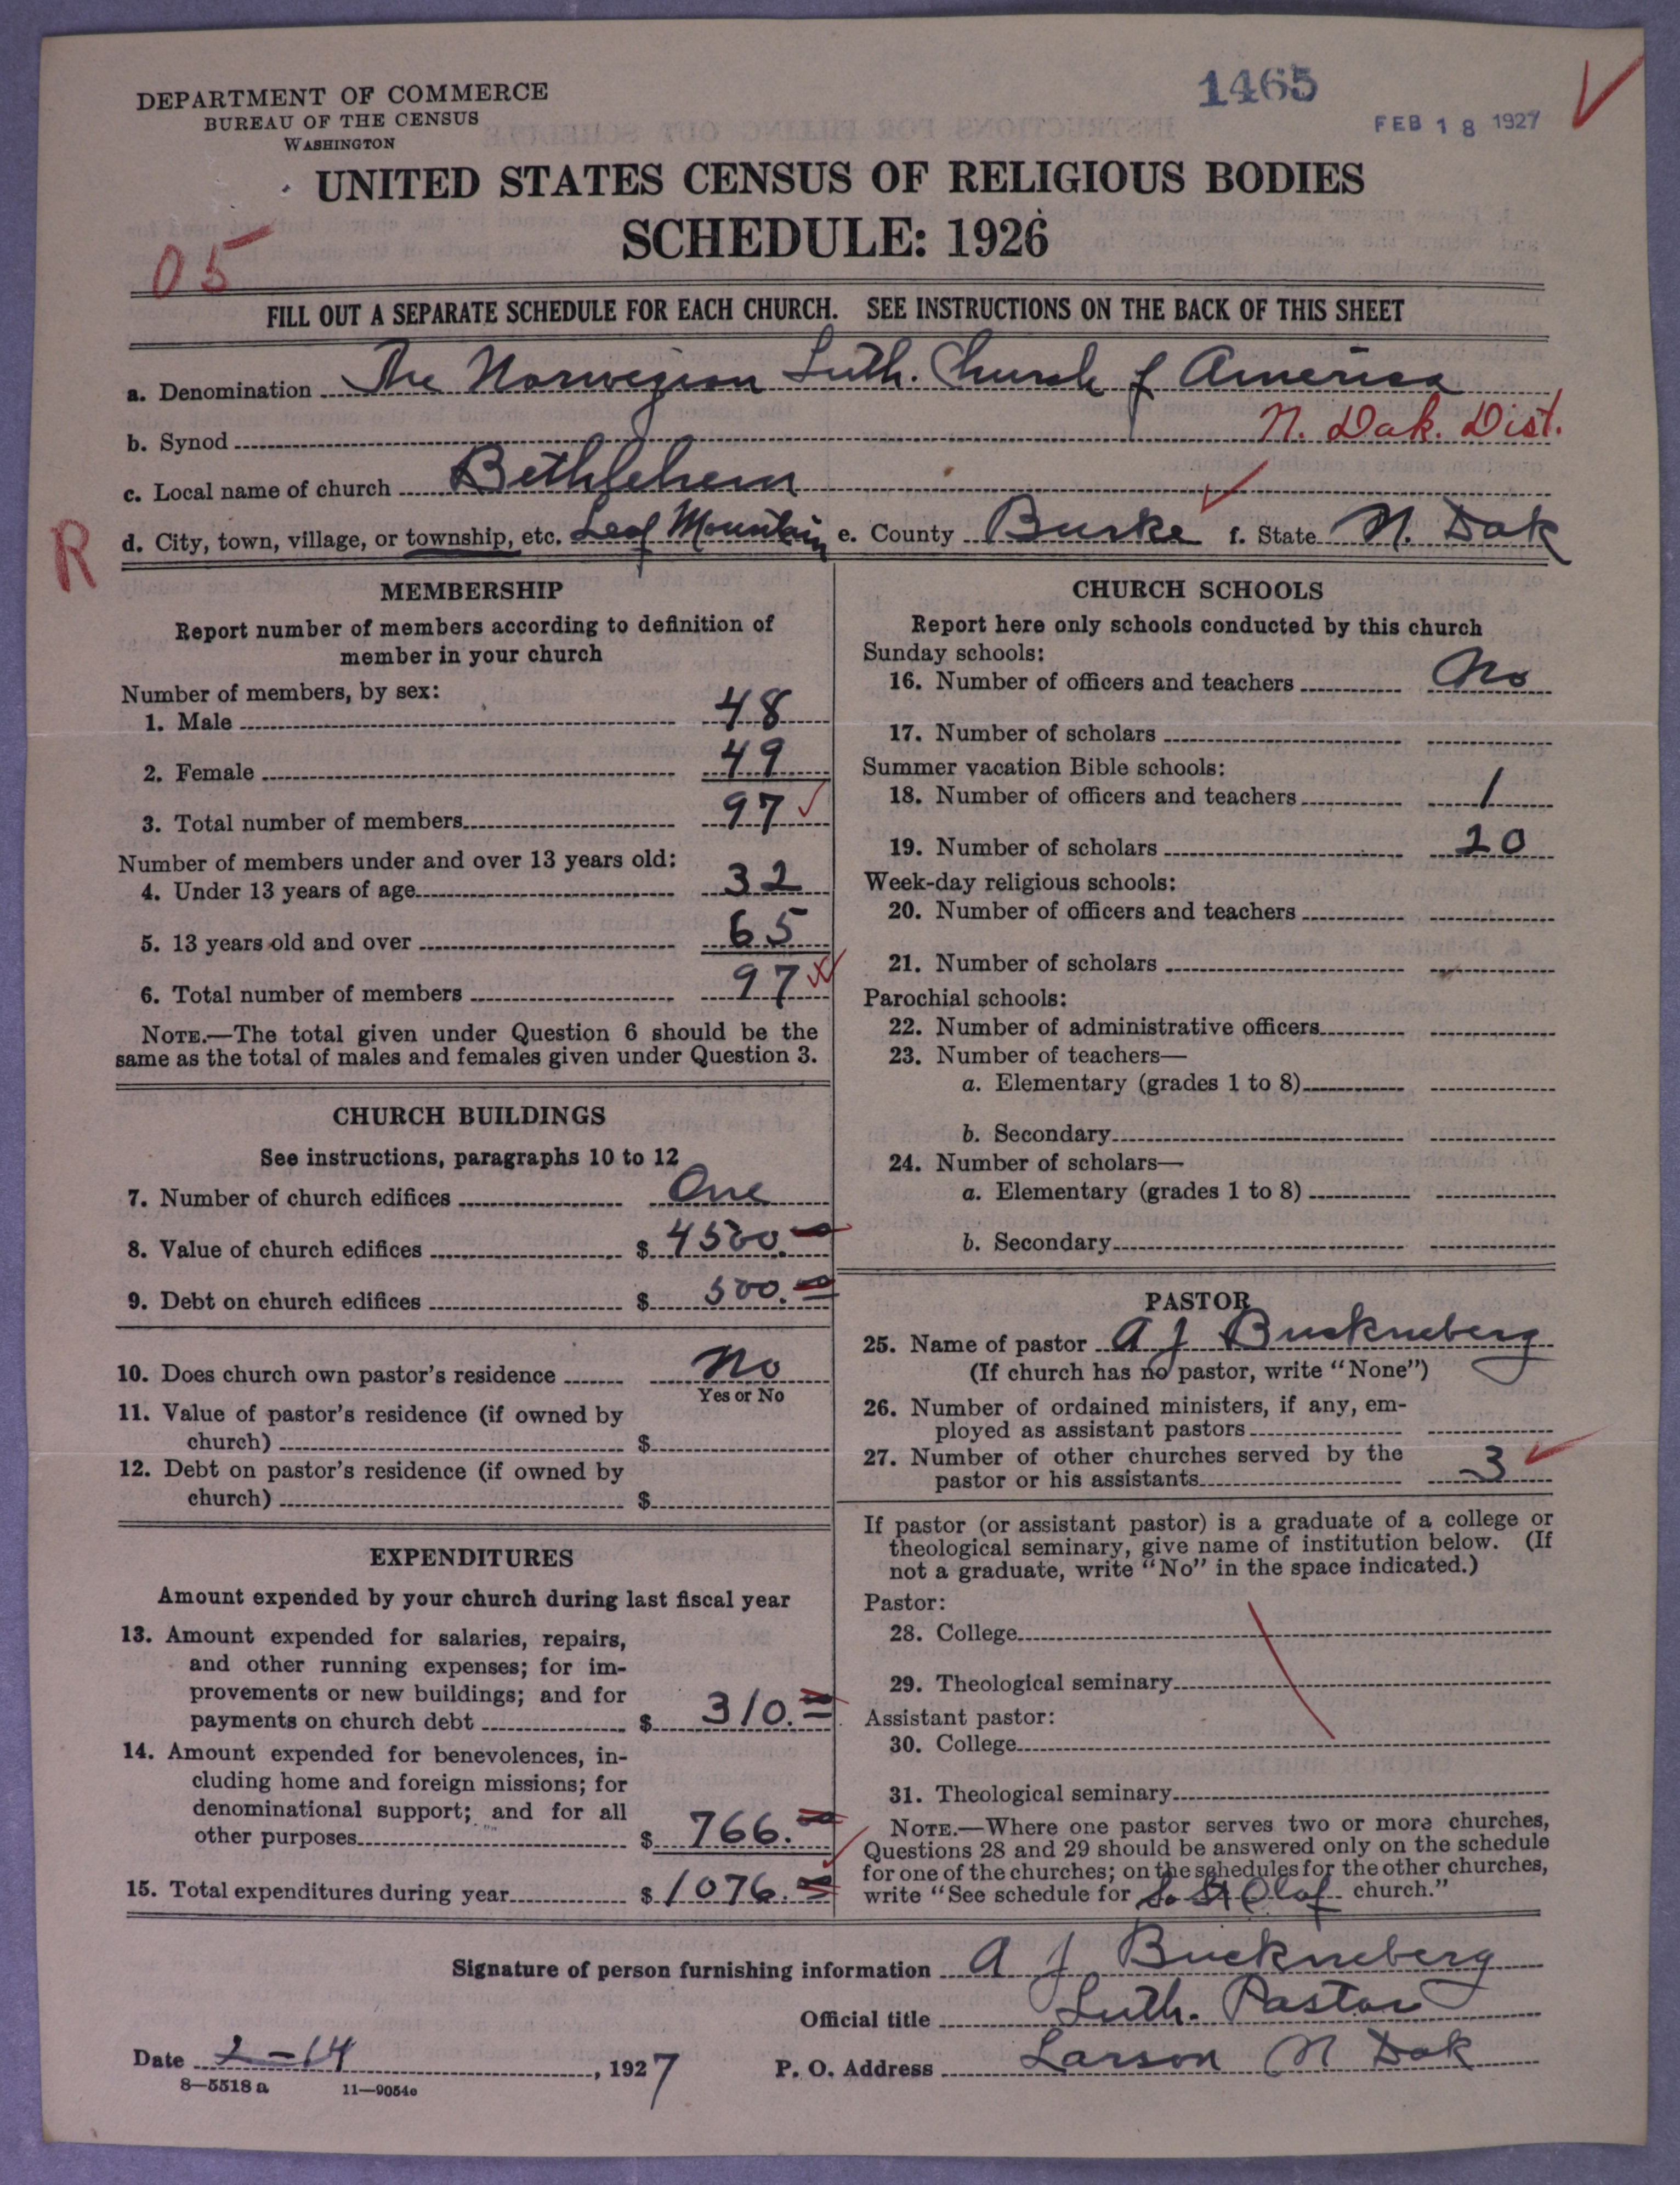 DEPARTMENT OF COMMERCE
BUREAU OF THE CENSUS
WASHINGTON
1465
FEB 18 1927
UNITED STATES CENSUS OF RELIGIOUS BODIES
SCHEDULE: 1926
05
FILL OUT A SEPARATE SCHEDULE FOR EACH CHURCH. SEE INSTRUCTIONS ON THE BACK OF THIS SHEET
a. Denomination The Norwegian Luth. Church of America
b. Synod N. Dak. Dist.
c. Local name of church Bethlehem
R
d. City, town, village, or township, etc. Leaf Mountain e. County Burke f. State N. Dak
MEMBERSHIP
Report number of members according to definition of
member in your church
Number of members, by sex:
1. Male 48
2. Female 49
3. Total number of members 97
Number of members under and over 13 years old:
4. Under 13 years of age 32
5. 13 years old and over 65
6. Total number of members 97
NOTE.—The total given under Question 6 should be the
same as the total of males and females given under Question 3.
CHURCH BUILDINGS
See instructions, paragraphs 10 to 12
7. Number of church edifices One
8. Value of church edifices $ 4500.00
9. Debt on church edifices $ 500.00
10. Does church own pastor's residence No
Yes or No
11. Value of pastor's residence (if owned by
church) $
12. Debt on pastor's residence (if owned by
church) $
EXPENDITURES
Amount expended by your church during last fiscal year
13. Amount expended for salaries, repairs,
and other running expenses; for im-
provements or new buildings; and for
payments on church debt $ 310.00
14. Amount expended for benevolences, in-
cluding home and foreign missions; for
denominational support; and for all
other purposes $ 766.00
15. Total expenditures during year $ 1076.00
CHURCH SCHOOLS
Report here only schools conducted by this church
Sunday schools:
16. Number of officers and teachers No
17. Number of scholars
Summer vacation Bible schools:
18. Number of officers and teachers 1
19. Number of scholars 20
Week-day religious schools:
20. Number of officers and teachers
21. Number of scholars
Parochial schools:
22. Number of administrative officers
23. Number of teachers—
a. Elementary (grades 1 to 8)
b. Secondary
24. Number of scholars—
a. Elementary (grades 1 to 8)
b. Secondary
PASTOR
25. Name of pastor A J Buckneberg
(If church has no pastor, write "None")
26. Number of ordained ministers, if any, em-
ployed as assistant pastors
27. Number of other churches served by the
pastor or his assistants 3
If pastor (or assistant pastor) is a graduate of a college or
theological seminary, give name of institution below. (If
not a graduate, write "No" in the space indicated.)
Pastor:
28. College
29. Theological seminary
Assistant pastor:
30. College
31. Theological seminary
NOTE.—Where one pastor serves two or more churches,
Questions 28 and 29 should be answered only on the schedule
for one of the churches; on the schedules for the other churches,
write "See schedule for So St Olaf church."
Signature of person furnishing information A J Buckneberg
Official title Luth. Pastor
Date 2-14, 1927 P. O. Address Larson N Dak
8—5518 a 11—9054o